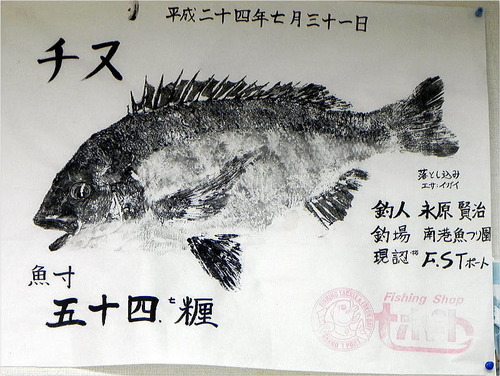 平成二十四年七月三十一日
チヌ
落とし込み
エサ:イガイ
釣人 永原 賢治
釣場 南港魚つり園
現認 F.STポート
魚寸
五十四.七糎
Fishing Shop